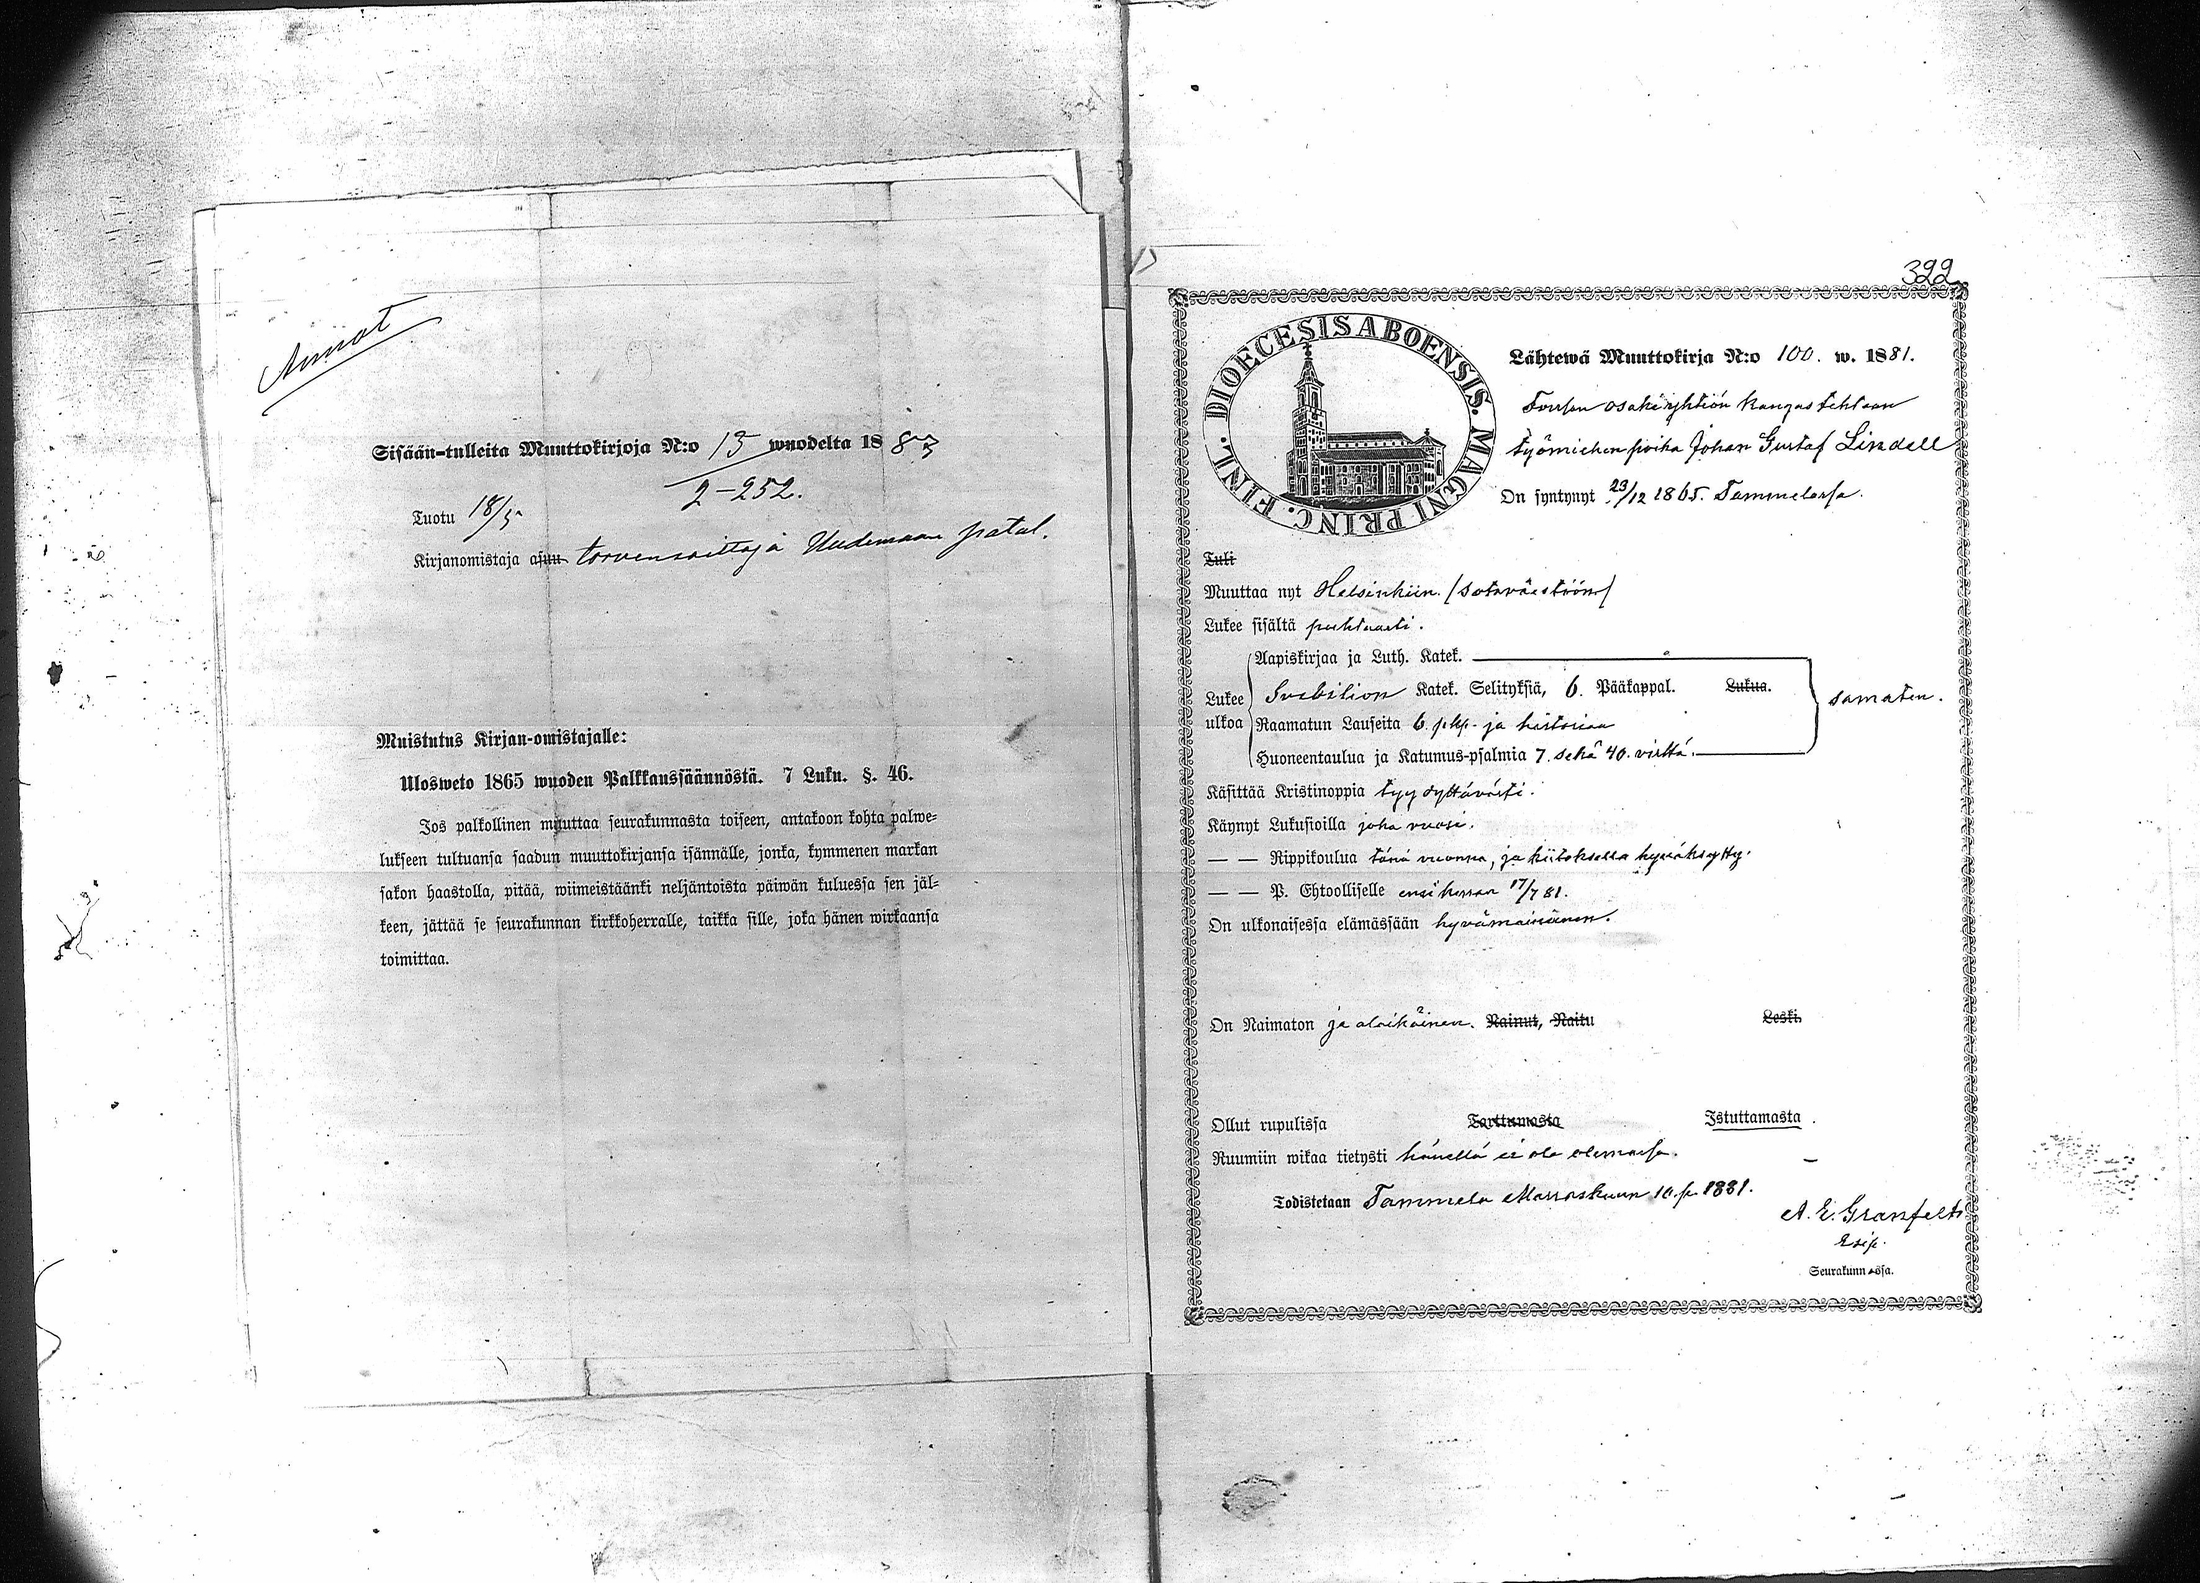 Annot
Sisään-tulleita Muuttokirjoja N:o 13 wuodelta 1883
2-252.
Tuotu 18/5
Kirjanomistaja asuu torvensoittaja Uudenmaan patal.
Muistutus Kirjan-omistajalle:
Ulosweto 1865 wuoden Palkkaussäännöstä. 7 Luku. §. 46.
Jos palkollinen muuttaa seurakunnasta toiseen, antakoon kohta palwe-
lukseen tultuansa saadun muuttokirjansa isännälle, jonka, kymmenen markan
sakon haastolla, pitää, wiimeistäänki neljäntoista päiwän kuluessa sen jäl-
keen, jättää se seurakunnan kirkkoherralle, taikka sille, joka hänen wirkaansa
toimittaa.
322
DIOECESIS ABOENSIS. MAGNI PRINC. FINL.
Lähtewä Muuttokirja N:o 100. w. 1881.
Forssan osakeyhtiön kangastehtaan
työmiehen poika Johan Gustaf Lindell
On syntynyt 23/12 1865. Tammelassa.
Tuli
Muuttaa nyt Helsinkiin. (sotaväestöön)
Lukee sisältä puhtaasti.
Lukee ulkoa
Aapiskirjaa ja Luth. Katek.
Svebilion Katek. Selityksiä, 6. Pääkappal. Lukua.
samaten.
Raamatun Lauseita 6. pkp. ja historiaa
Huoneentaulua ja Katumus-psalmia 7. sekä 40. virttä.
Käsittää Kristinoppia tyydyttävästi.
Käynyt Lukusioilla joka vuosi.
— — Rippikoulua tänä vuonna, ja kiitoksella hyväksytty.
— — P. Ehtoolliselle ensi kerran 17/7 81.
On ulkonaisessa elämässään hyvämaineinen.
On Naimaton ja alaikäinen. Nainut, Naitu Leski.
Ollut rupulissa Tarttumasta Istuttamasta.
Ruumiin wikaa tietysti hänellä ei ole olemassa.
Todistetaan Tammela Marraskuun 10. p. 1881.
A. E. Granfelt
Seurakunnassa.